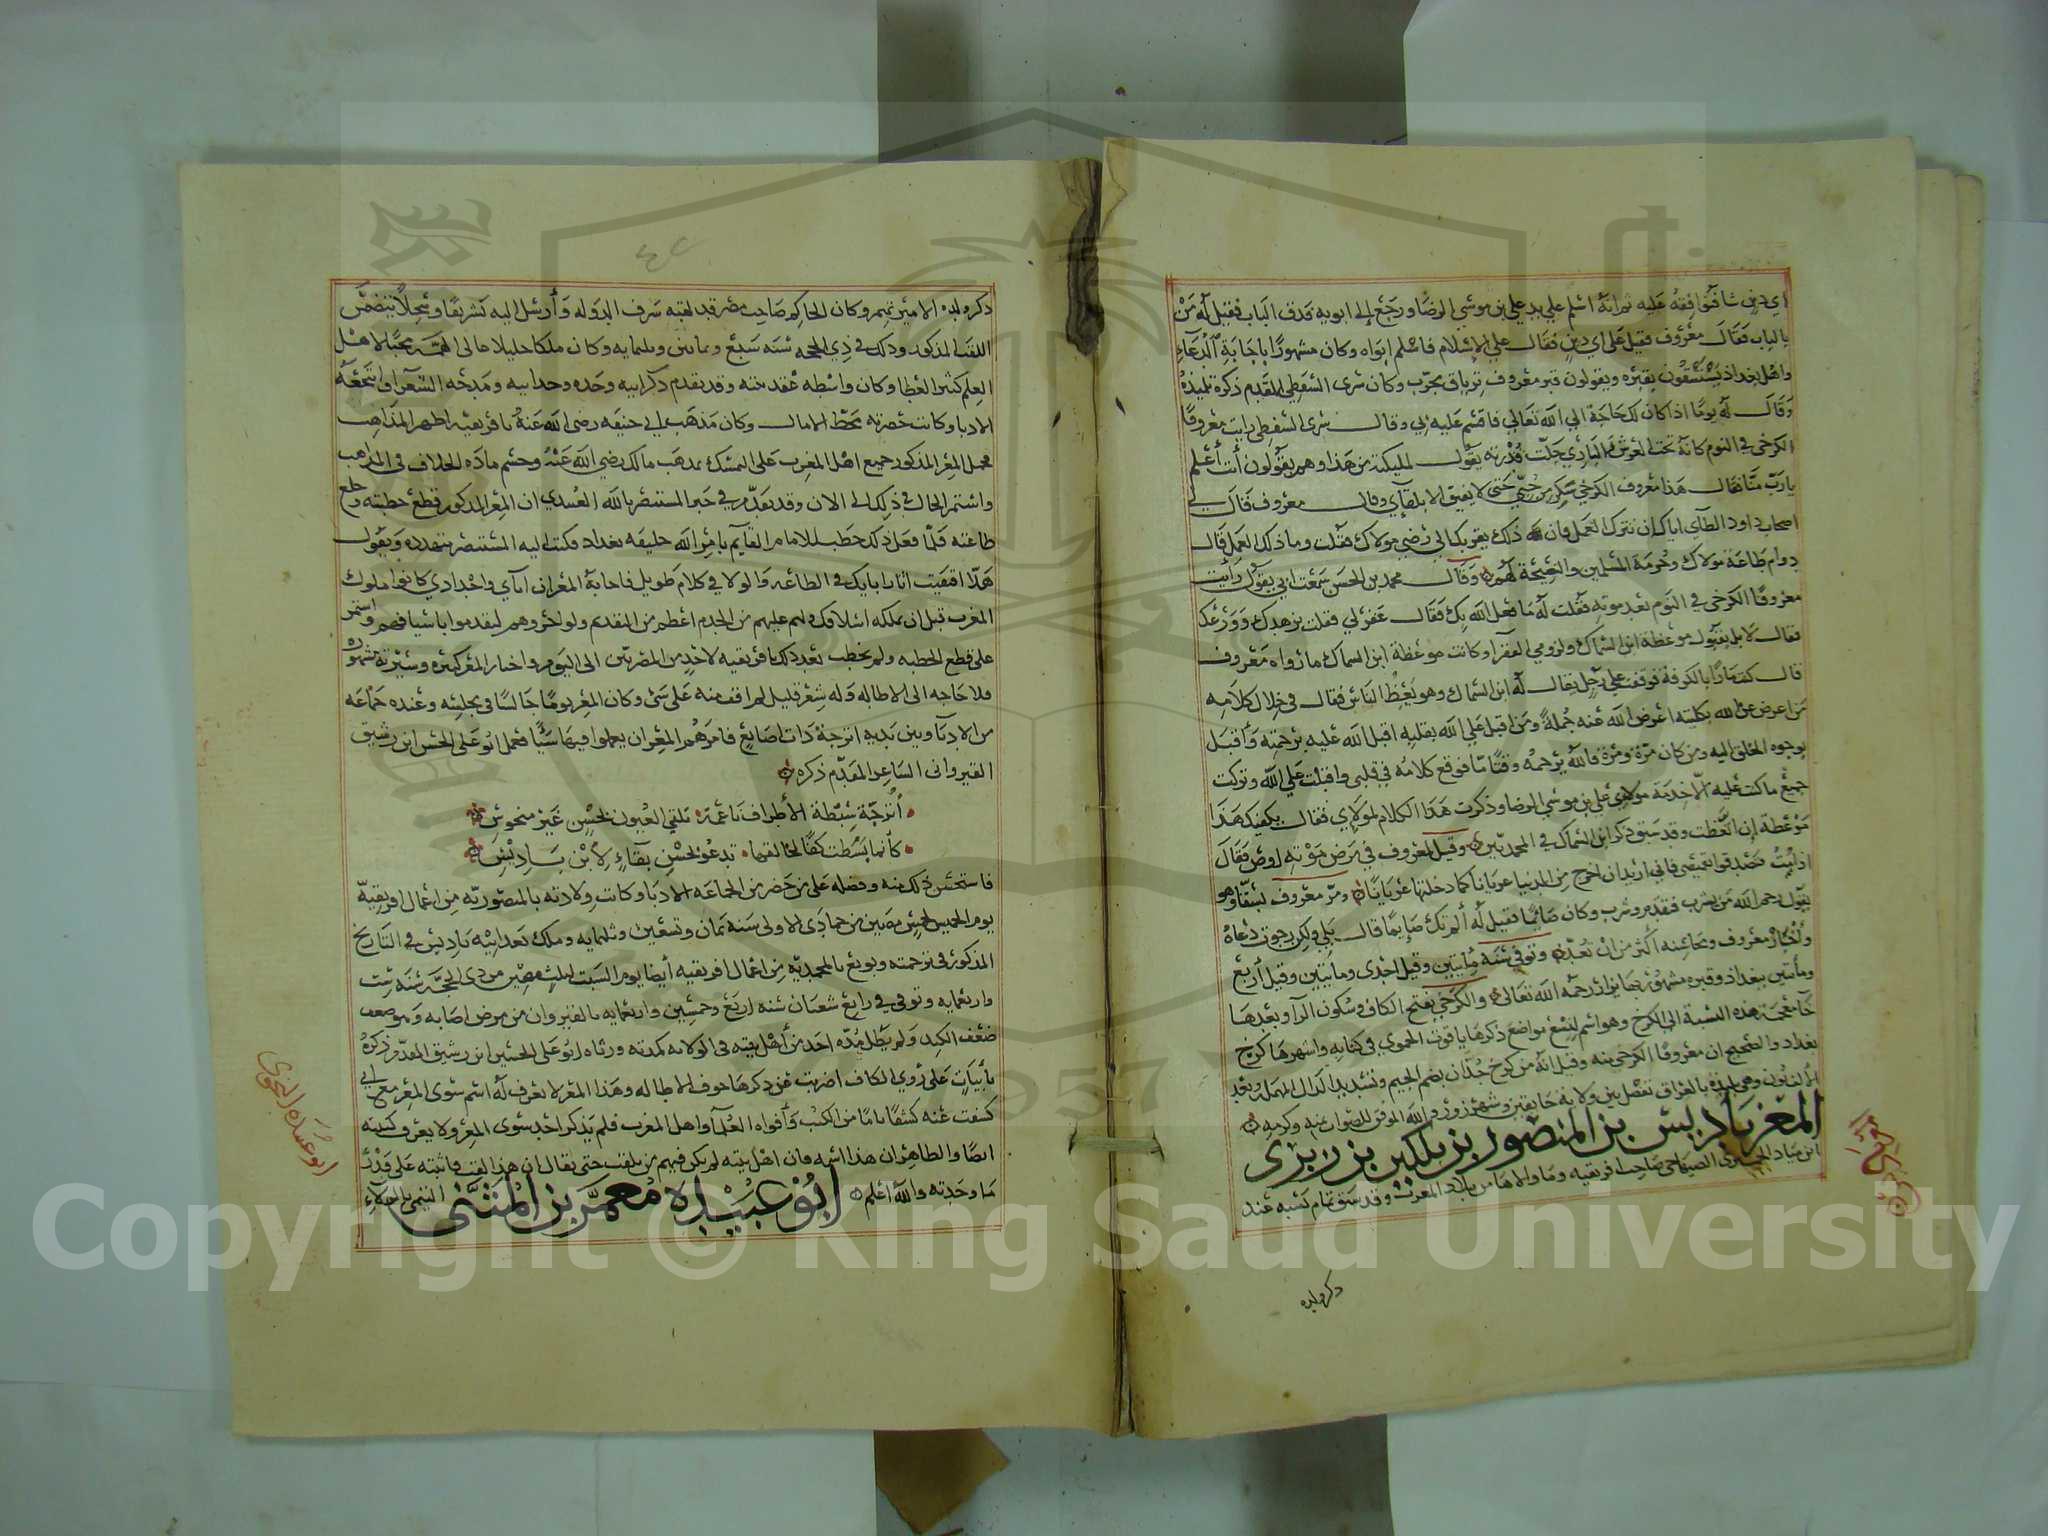 اي دين شا فنوافقه عليه ثم انه اسلم علي يد علي بن موسي الرضا ورجع الي ابويه فدق الباب فقيل له من
بالباب فقال معروف فقيل علي اي دين فقال علي الاسلام فاسلم ابواه وكان مشهورًا باجابة الدعاء
واهل بغداد يستسقون بقبره ويقولون قبر معروف ترياق مجرب وكان سري السقطي المقدم ذكره تلميذه
وقال له يومًا اذا كان لك حاجة الي الله تعالي فاقسم عليه بي وقال سري السقطي رايت معروفًا
الكرخي في النوم كانه تحت العرش والباري جلت قدرته يقول لمليكته من هذا وهم يقولون أنت أعلم
يارب منا فقال هذا معروف الكرخي سكر من حبي حتي لا يفيق الا بلقآي وقال معروف قال لي
اصحاب داود الطآي اياك ان تترك العمل فان ذلك يقربك الي رضي مولاك فقلت وما ذلك العمل قال
دوام طاعة مولاك وحرمة المسلمين والنصيحة لهم وقال محمد بن الحسن سمعت ابي يقول رايت
معروفًا الكرخي في النوم بعد موته فقلت له ما فعل الله بك فقال غفر لي فقلت بزهدك وورعك
فقال لا بل بقبول موعظة ابن السماك ولزومي الفقرا وكانت موعظة ابن السماك ما رواه معروف
قال كنت مارًا بالكوفة فوقفت علي رجل يقال له ابن السماك وهو يعظ الناس فقال في خلال كلامه
من اعرض عن الله بكليته اعرض الله عنه جملةً ومن اقبل علي الله بقلبه اقبل الله عليه برحمته وأقبل
بوجوه الخلق اليه ومن كان مرة ومرة فالله يرحمه وقتًا ما فوقع كلامه في قلبي واقبلت علي الله وتركت
جميع ما كنت عليه الا خدمة مولاي علي بن موسي الرضا وذكرت هذا الكلام لمولاي فقال يكفيك هذا
موعظة إن اتعظت وقد سبق ذكر ابن السماك في المحمديين وقيل لمعروف في مرض موته اوص فقال
اذا مت فتصدقوا بقميصي فاني اريد ان اخرج من الدنيا عريانا كما دخلتها عريانًا ومرّ معروف بسقّا وهو
يقول رحم الله من يشرب فتقدم وشرب وكان صايمًا فقيل له ألم تك صايمًا قال بلي ولكن رجوت دعاه
وأخبار معروف ومحاسنه اكثر من ان تعد وتوفي سنة مأيتين وقيل احدي ومأيتين وقيل أربع
ومأيتين ببغداد وقبره مشهور بها يزار رحمه الله تعالي والكرخي بفتح الكاف وسكون الرآ وبعدها
خآ معجمة هذه النسبة الي الكرخ وهو اسم لتسع مواضع ذكرها ياقوت الحموي في كتابه واشهرها كرخ
بغداد والصحيح ان معروفًا الكرخي منه وقيل انه من كرخ جدان بضم الجيم وتشديد الدال المهملة وبعد
الالف نون وهي بليدة بالعراق تفصل بين ولاية خانقين وشهرزور والله الموفق للصواب بمنه وكرمه
المعز بن باديس بن المنصور بن بلكين بن زيري
ابن مناد الحميري الصنهاجي صاحب افريقيه وما والاها من بلاد المغرب وقد سبق تمام نسبه عند
ذكر ولده
ذكر ولده الامير تميم وكان الحاكم صاحب مصر قد لقبه شرف الدوله وأرسل اليه تشريفًا وسجلاً يتضمن
اللقب المذكور وذلك في ذي الحجه سنه سبع وكان ملكا جليلا عالى الهمه محبًا لاهل
العلم كثير العطا وكان واسطه عقد بيته وقد تقدم ذكر ابيه وجده وجد ابيه ومدحه الشعرا وانتجعه
الادبا وكانت حضرته محط الامال وكان مذهب ابي حنيفه رضى الله عنه بافريقيه اظهر المذاهب
فحمل المعز المذكور جميع اهل المغرب على التمسك بمذهب مالك رضي الله عنه وحسم ماده الخلاف في المذهب
واستمر الحال في ذلك الى الان وقد تقدم في خبر المستنصر بالله العبيدي ان المعز المذكور قطع خطبته وخلع
طاعته فلما فعل ذلك خطب للامام القآيم بامر الله خليفه بغداد فكتب اليه المستنصر يتهدده ويقول
هلا اقتفيت اثار ابايك في الطاعه والولا في كلام طويل فاجابه المعز ان ابآي واجدادي كانوا ملوك
المغرب قبل ان تملكه اسلافك ولهم عليهم من الخدم اعظم من التقديم ولو اخروهم لتقدموا باسيافهم واستمر
على قطع الخطبه ولم يخطب بعد ذلك بافريقيه لاحد من المصريين الى اليوم واخبار المعز كثيره وسيرته مشهوره
فلا حاجه الى الاطاله وله شعر قليل لم اقف منه على شى وكان المعز يومًا جالسًا في مجلسه وعنده جماعه
من الادبآ وبين يديه اترجة ذات اصابع فامرهم المعز ان يعملوا فيها شيًا فعمل ابو على الحسن ابن رشيق
القيروانى الشاعر المقدم ذكره
أترجّة سبطة الأطراف ناعمة تلقي العيون بحسن غير منحوس
كأنما بسطت كفًا لخالقها تدعو بحسن بقاءٍ لابن باديس
فاستحسن ذلك منه وفضله على من حضر من الجماعه الادبا وكانت ولادته بالمنصوريه من اعمال افريقيه
يوم الخميس لخمس مضين من جمادى الاولى سنة ثمان وتسعين وثلثمايه وملك بعد ابيه باديس في التاريخ
المذكور في ترجمته وبويع بالمحمديه من اعمال افريقيه أيضا يوم السبت لثلث مضين من ذي الحجه سنه ست
واربعمايه وتوفي في رابع شعبان سنه اربع وخمسين واربعمايه بالقيروان من مرض اصابه وهو ضعف
ضعف الكبد ولم يطل مده احد من أهل بيته في الولايه كمدته ورثاه ابو على الحسن ابن رشيق المقدم ذكره
بأبيات على روي الكاف اضربت عن ذكرها خوف الاطاله وهذا المعز لا يعرف له اسم سوى المعز مع اني
كشفت عنه كشفًا تامًا من الكتب وأفواه العلمآ واهل المغرب فلم يذكر احد سوى المعز ولا يعرف كنيته
ايضًا والظاهر ان هذا اسمه فان اهل بيته لم يكن فيهم من يلقب حتى يقال ان هذا لقب فاثبته على قدر
ما وجدته والله اعلم ابو عبيدة معمر بن المثنى التيمي بالولاء
ابو عبيده النحوى
Copyright © King Saud University
1957